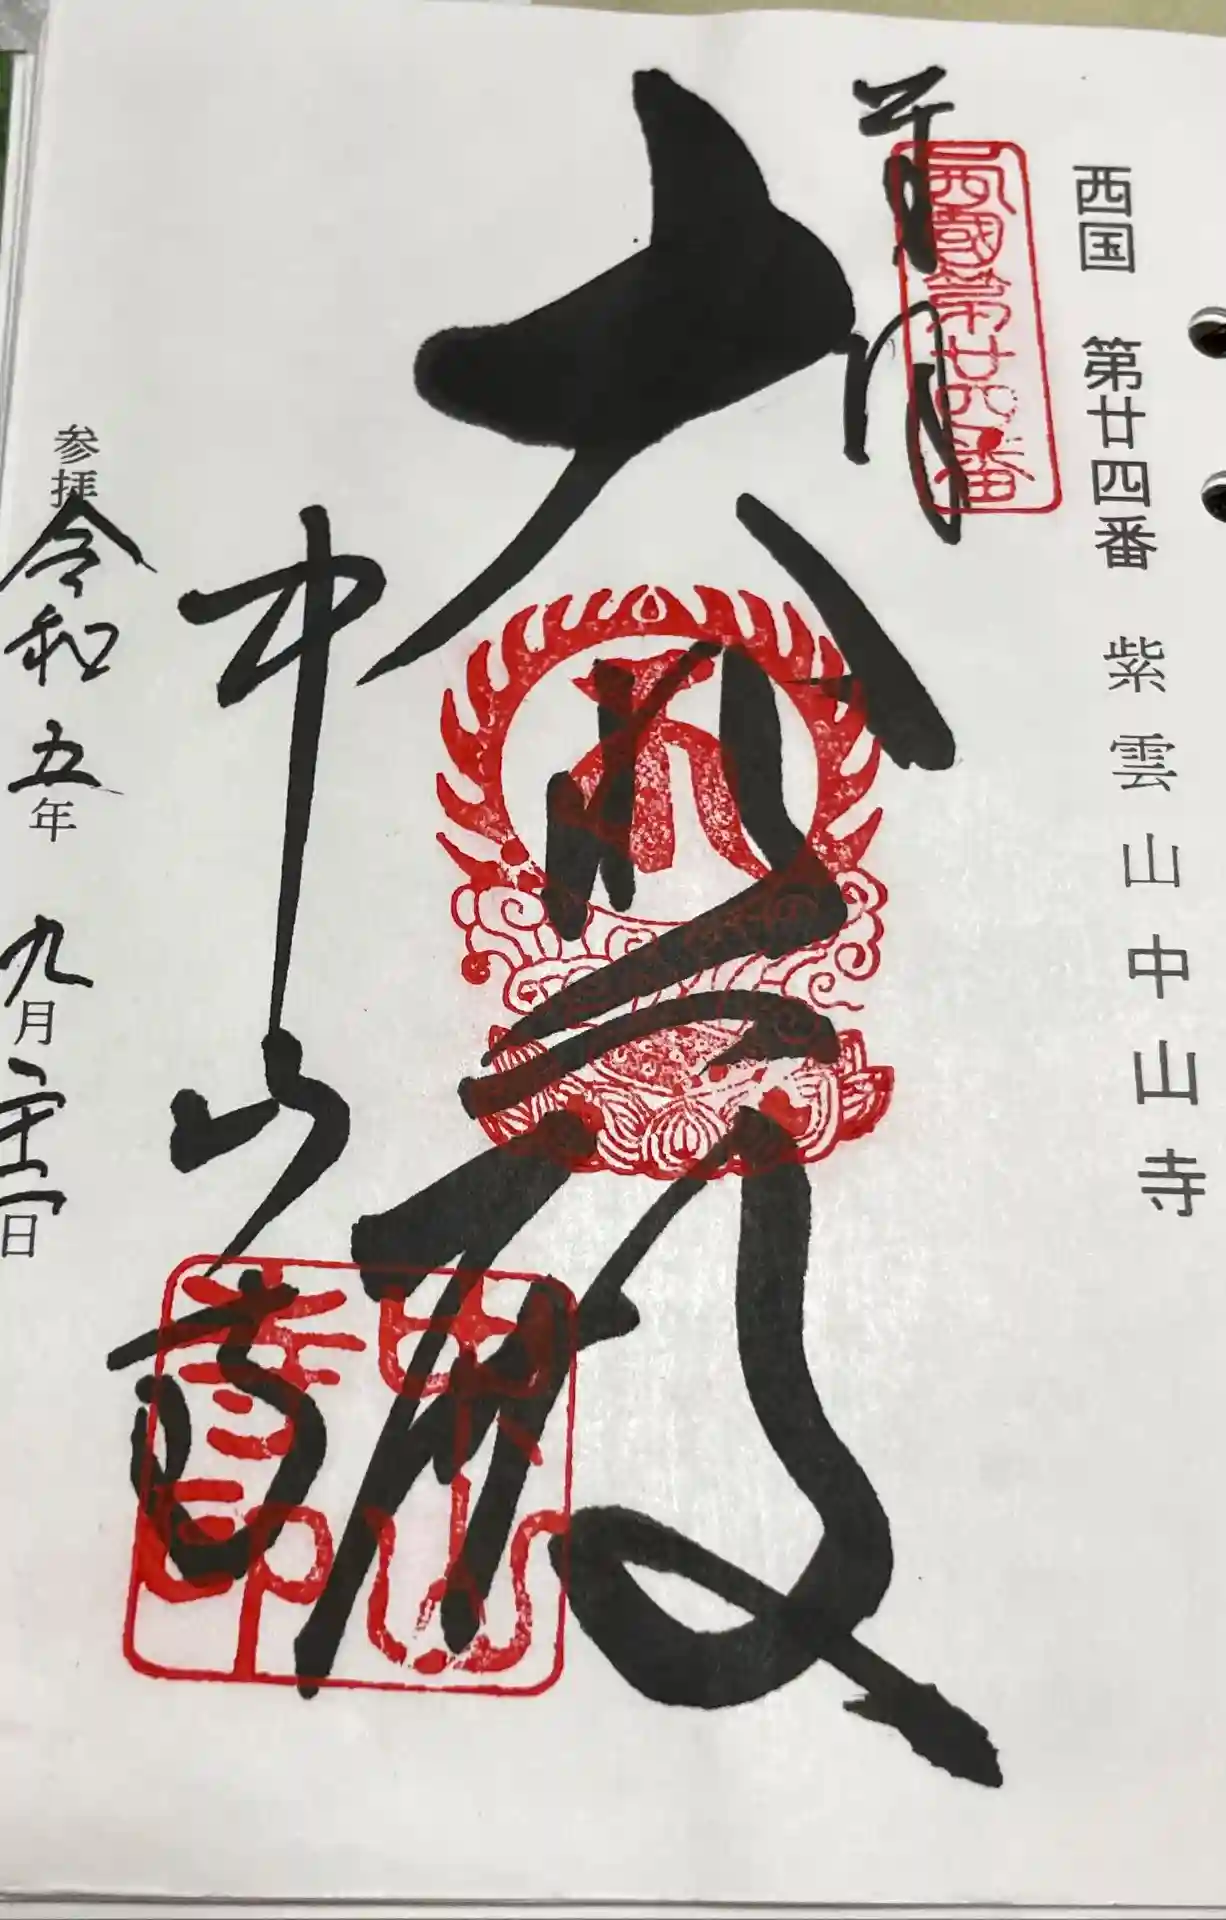 西国 第廿四番 紫雲山中山寺
奉拝
西國第廿四番
大悲殿
中山寺
中山
寺印
参拝 令和五年 九月 日